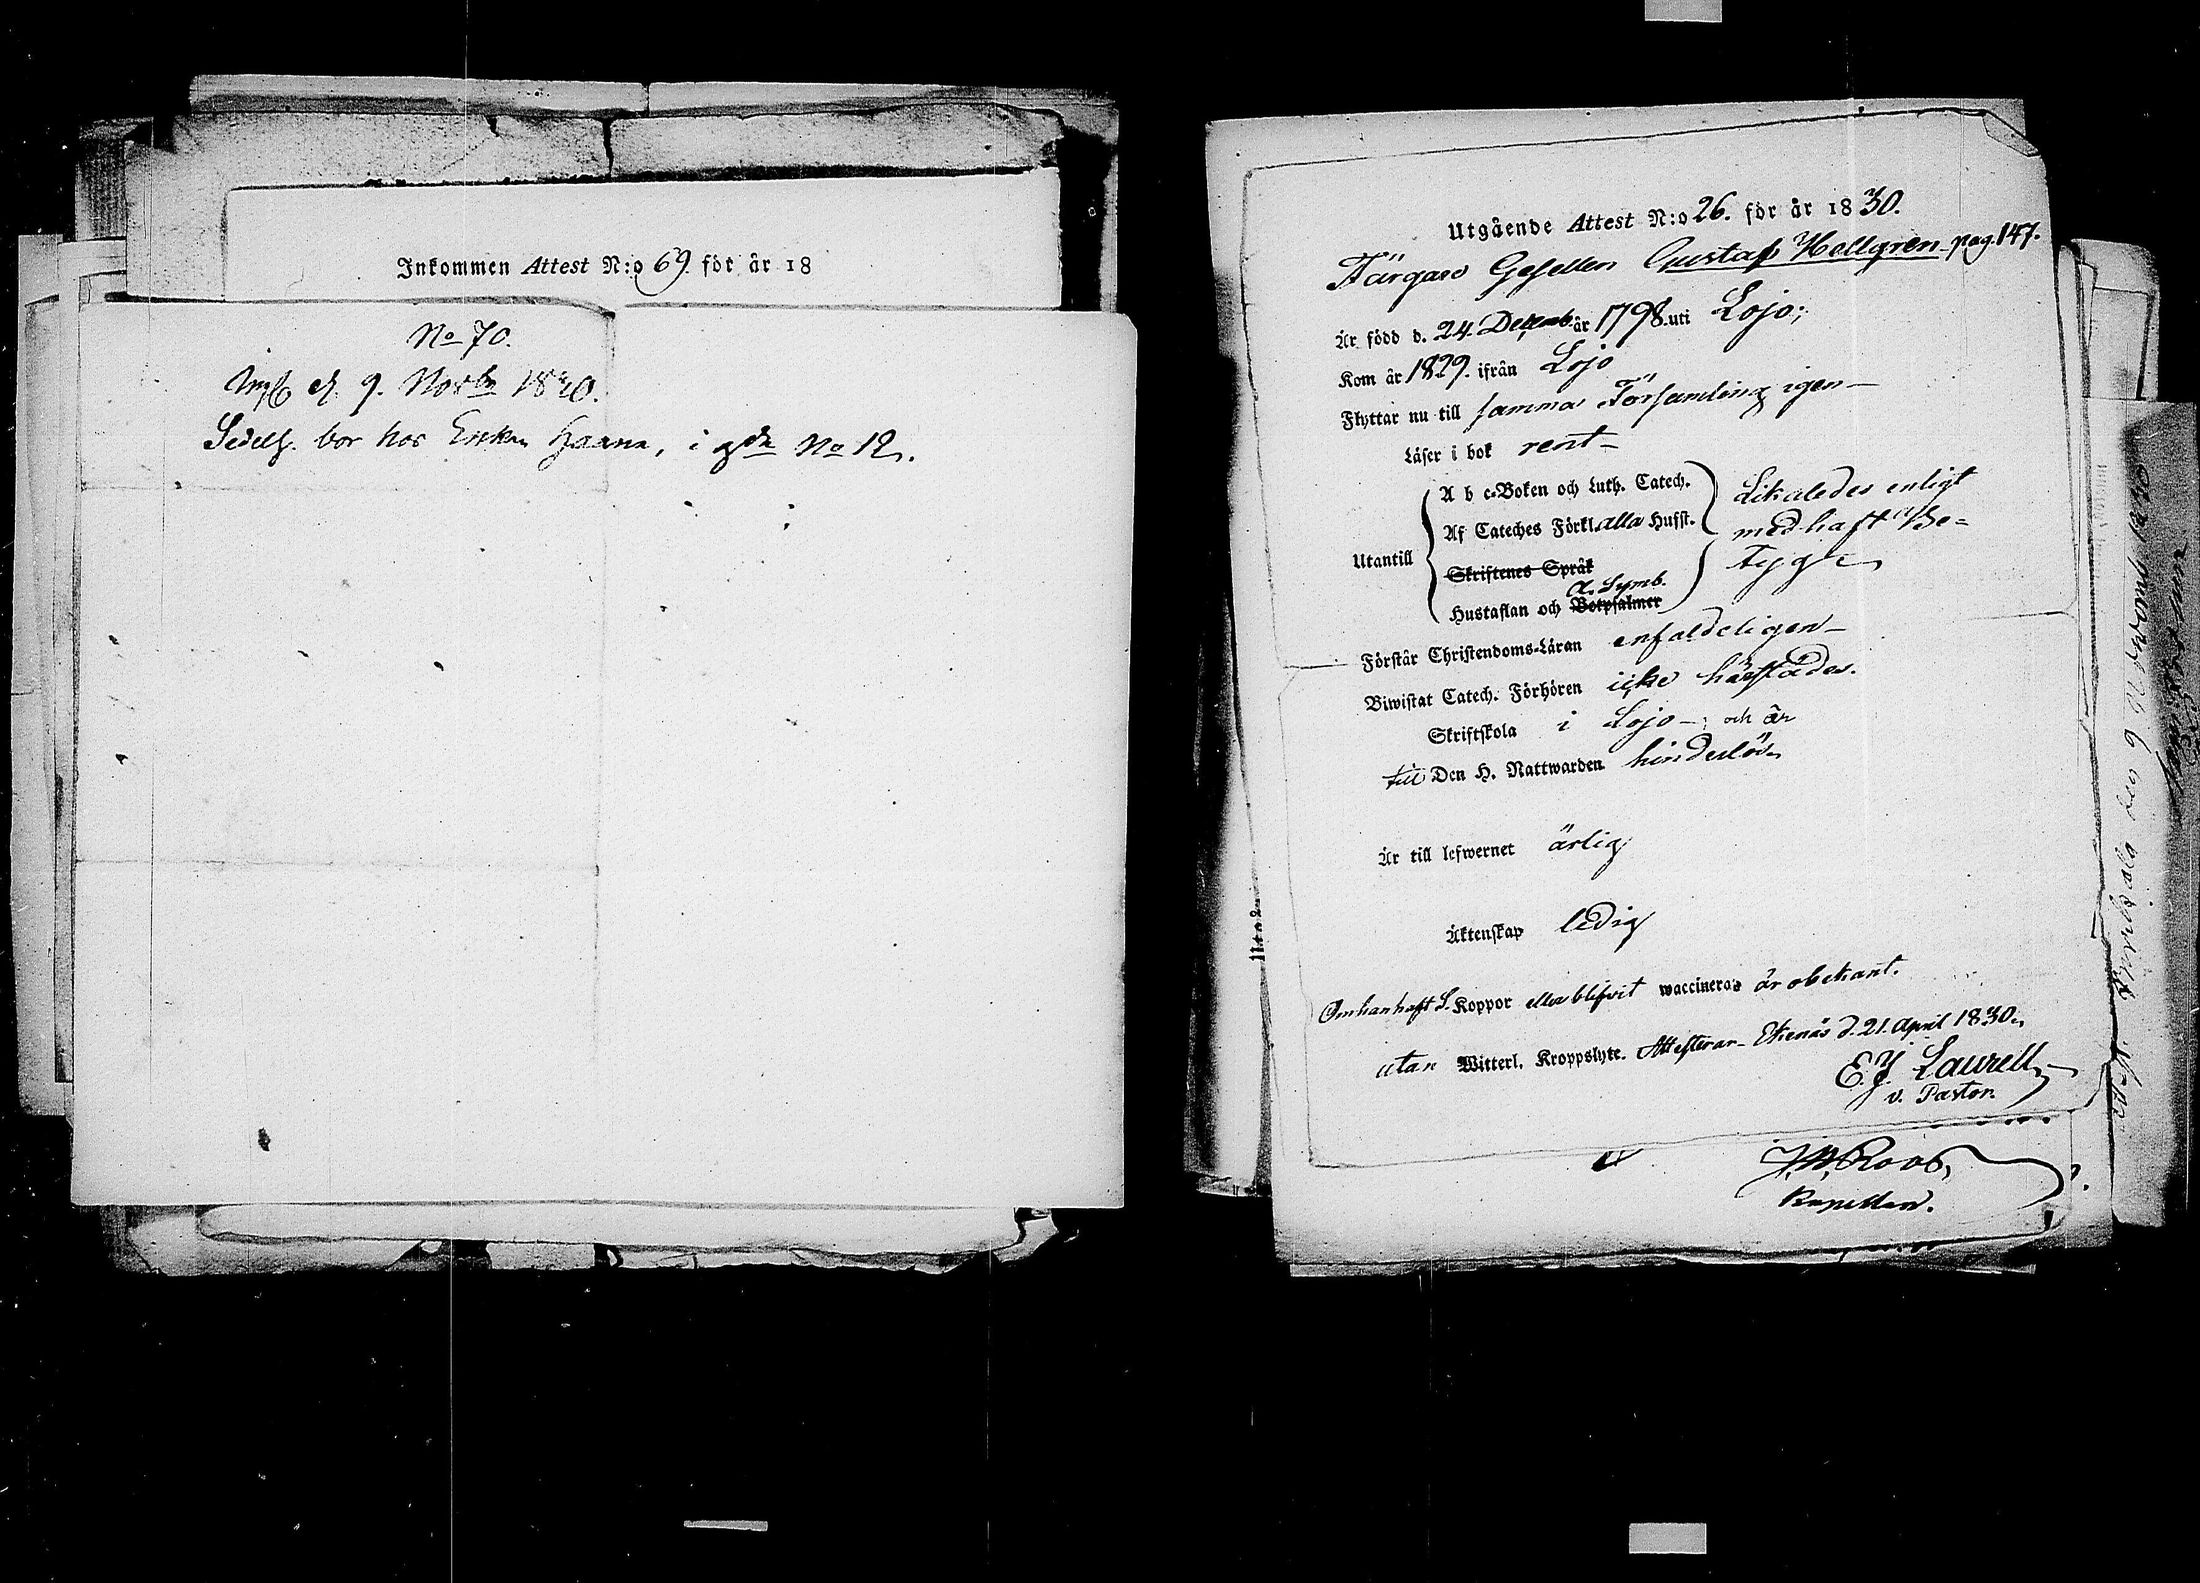 Inkommen Attest N:o 69. för år 18
No 70.
d. 9. Novbr 1830.
Sedelh. bor hos Enkan Haana, i gdn No 12.
Utgående Attest N:o 26. för år 1830.
Färgare Gesellen Gustaf Hellgren pag. 147.
Är född d. 24. Decemb. år 1798. uti Lojo;
Kom år 1829. ifrån Lojo
Flyttar nu till samma Församling igen
Läser i bok rent
Utantill
A b c-Boken och Luth. Catech.
Af Cateches Förkl. alla Hufst.
Skriftenes Språk
A. Symb.
Hustaflan och Botpsalmer
Likaledes enligt
medhaft Be=
tyg
Förstår Christendoms-Läran enfaldeligen
Biwistat Catech. Förhören icke härstädes.
Skriftskola i Lojo och är
till Den H. Nattwarden hinderlös
Är till lefwernet ärlig
Äktenskap ledig
Om han haft S. Koppor eller blifvit waccinerad är obekant.
utan Witterl. Kroppslyte. Attesterar Ekenäs d. 21. April 1830.
E. J. Laurell
v. Pastor.
Roos,
Kapellan.